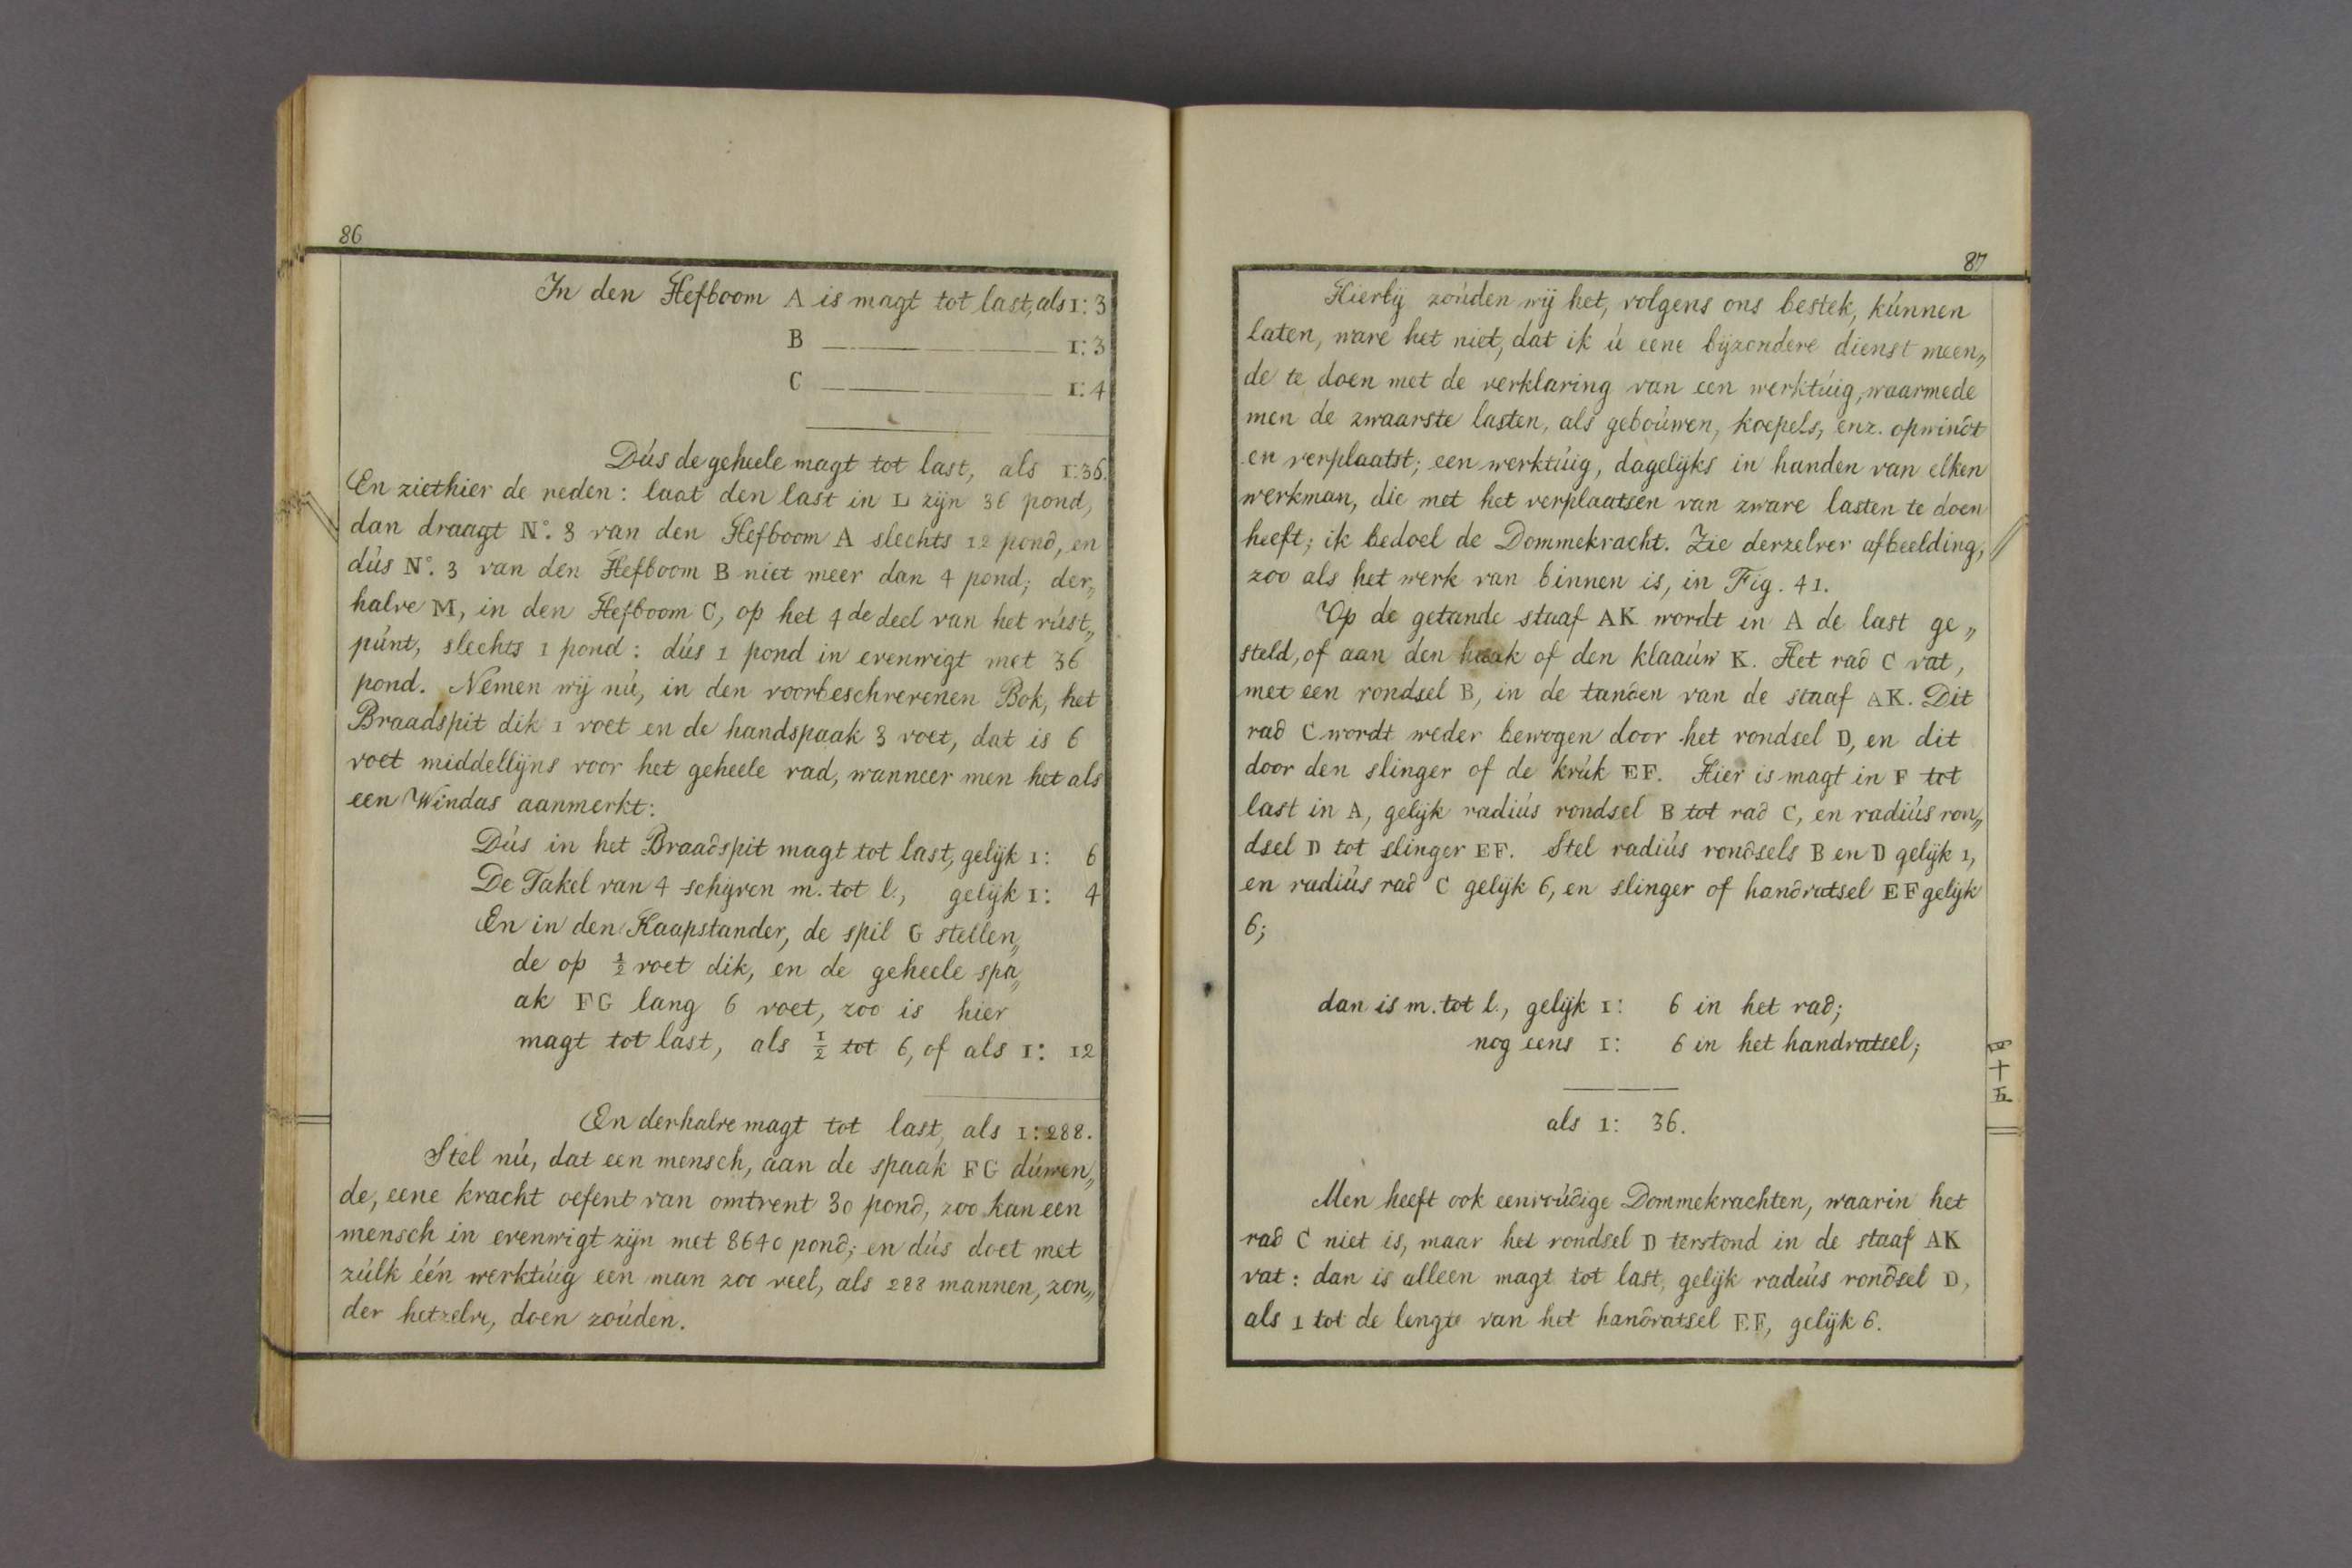 86
In den Hefboom A is magt tot last, als 1: 3
B ——— 1: 3
C ——— 1: 4
Dús de geheele magt tot last, als 1:36.
En ziethier de reden: laat den last in L zijn 36 pond,
dan draagt N°. 3 van den Hefboom A slechts 12 pond, en
dús N°. 3 van den Hefboom B niet meer dan 4 pond; der„
halve M, in den Hefboom C, op het 4de deel van het rúst„
púnt, slechts 1 pond: dús 1 pond in evenwigt met 36
pond. Nemen wij nú, in den voorbeschrevenen Bok, het
Braadspit dik 1 voet en de handspaak 3 voet, dat is 6
voet middellijns voor het geheele rad, wanneer men het als
een Windas aanmerkt:
Dús in het Braadspit magt tot last, gelijk 1: 6
De Takel van 4 schijven m. tot l., gelijk 1: 4
En in den Kaapstander, de spil G stellen„
de op ½ voet dik, en de geheele spa„
ak FG lang 6 voet, zoo is hier
magt tot last, als ½ tot 6, of als 1: 12
En derhalve magt tot last, als 1:288.
Stel nú, dat een mensch, aan de spaak FG dúwen„
de, eene kracht oefent van omtrent 30 pond, zoo kan een
mensch in evenwigt zijn met 8640 pond; en dús doet met
zúlk één werktúig een man zoo veel, als 288 mannen, zon„
der hetzelve, doen zoúden.
87
Hierbij zoúden wij het, volgens ons bestek, kúnnen
laten, ware het niet, dat ik ú eene bijzondere dienst meen„
de te doen met de verklaring van een werktúig, waarmede
men de zwaarste lasten, als geboúwen, koepels, enz. opwindt
en verplaatst; een werktúig, dagelijks in handen van elken
werkman, die met het verplaatsen van zware lasten te doen
heeft; ik bedoel de Dommekracht. Zie derzelver afbeelding,
zoo als het werk van binnen is, in Fig. 41.
Op de getande staaf AK wordt in A de last ge„
steld, of aan den haak of den klaaúw K. Het rad C vat,
met een rondsel B, in de tanden van de staaf AK. Dit
rad C wordt weder bewogen door het rondsel D, en dit
door den slinger of de krúk EF. Hier is magt in F tot
last in A, gelijk radiús rondsel B tot rad C, en radiús ron„
dsel D tot slinger EF. Stel radiús rondsels B en D gelijk 1,
en radiús rad C gelijk 6, en slinger of handratsel EF gelijk
6;
dan is m. tot l., gelijk 1: 6 in het rad;
nog eens 1: 6 in het handratsel;
als 1: 36.
四十五
Men heeft ook eenvoúdige Dommekrachten, waarin het
rad C niet is, maar het rondsel D terstond in de staaf AK
vat: dan is alleen magt tot last, gelijk radiús rondsel D,
als 1 tot de lengte van het handratsel EF, gelijk 6.